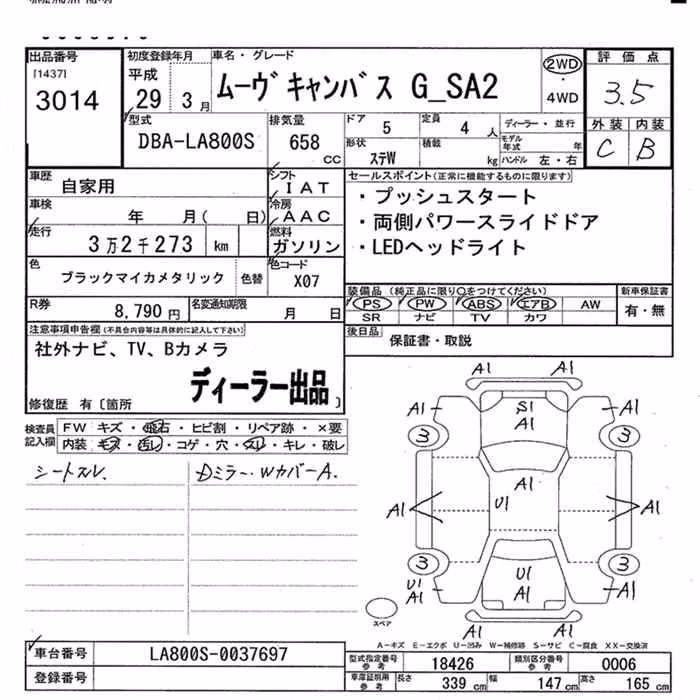 出品番号
[1437]
3014
初度登録年月
平成
29 3月
車名・グレード
ムーヴ キャンバス G_SA2
2WD
・
4WD
評価点
3.5
外装 内装
C B
型式
DBA-LA800S
排気量
658
CC
ドア 5
定員 4人
ディーラー・並行
モデル年式 年
形状 ステW
積載 kg
ハンドル 左・右
車歴
自家用
シフト
IAT
車検
年 月( 日)
冷房
AAC
走行
3万2千273 km
燃料
ガソリン
色
ブラックマイカメタリック
色替
色コード
X07
R券
8,790円
名変通知期限
月 日
セールスポイント(正常に機能するものに限ります)
・プッシュスタート
・両側パワースライドドア
・LEDヘッドライト
装備品(純正品に限り○をつけてください) 新車保証書
PS PW ABS エアB AW 有・無
SR ナビ TV カワ
後日品
保証書・取説
注意事項申告欄(不具合内容等は具体的に記入して下さい)
社外ナビ、TV、Bカメラ
ディーラー出品
修復歴 有〔箇所 〕
検査員
記入欄
FW キズ・飛石・ヒビ割・リペア跡・×要
内装 キズ・汚レ・コゲ・穴・スレ・キレ・破レ
シートスレ.
Dミラー・WカバーA.
A1 A1
A1 S1 A1
A1
3 3
A1
A1 U1 A1
3 3
U1 U1
A1 A1 A1
A1 A1
スペア
A-キズ E-エクボ U-凹み W-補修跡 S-サビ C-腐食 XX-交換済
車台番号
LA800S-0037697
登録番号
型式指定番号
参考
18426
類別区分番号
参考
0006
車庫証明用
参考
長さ 339 cm
幅 147 cm
高さ 165 cm